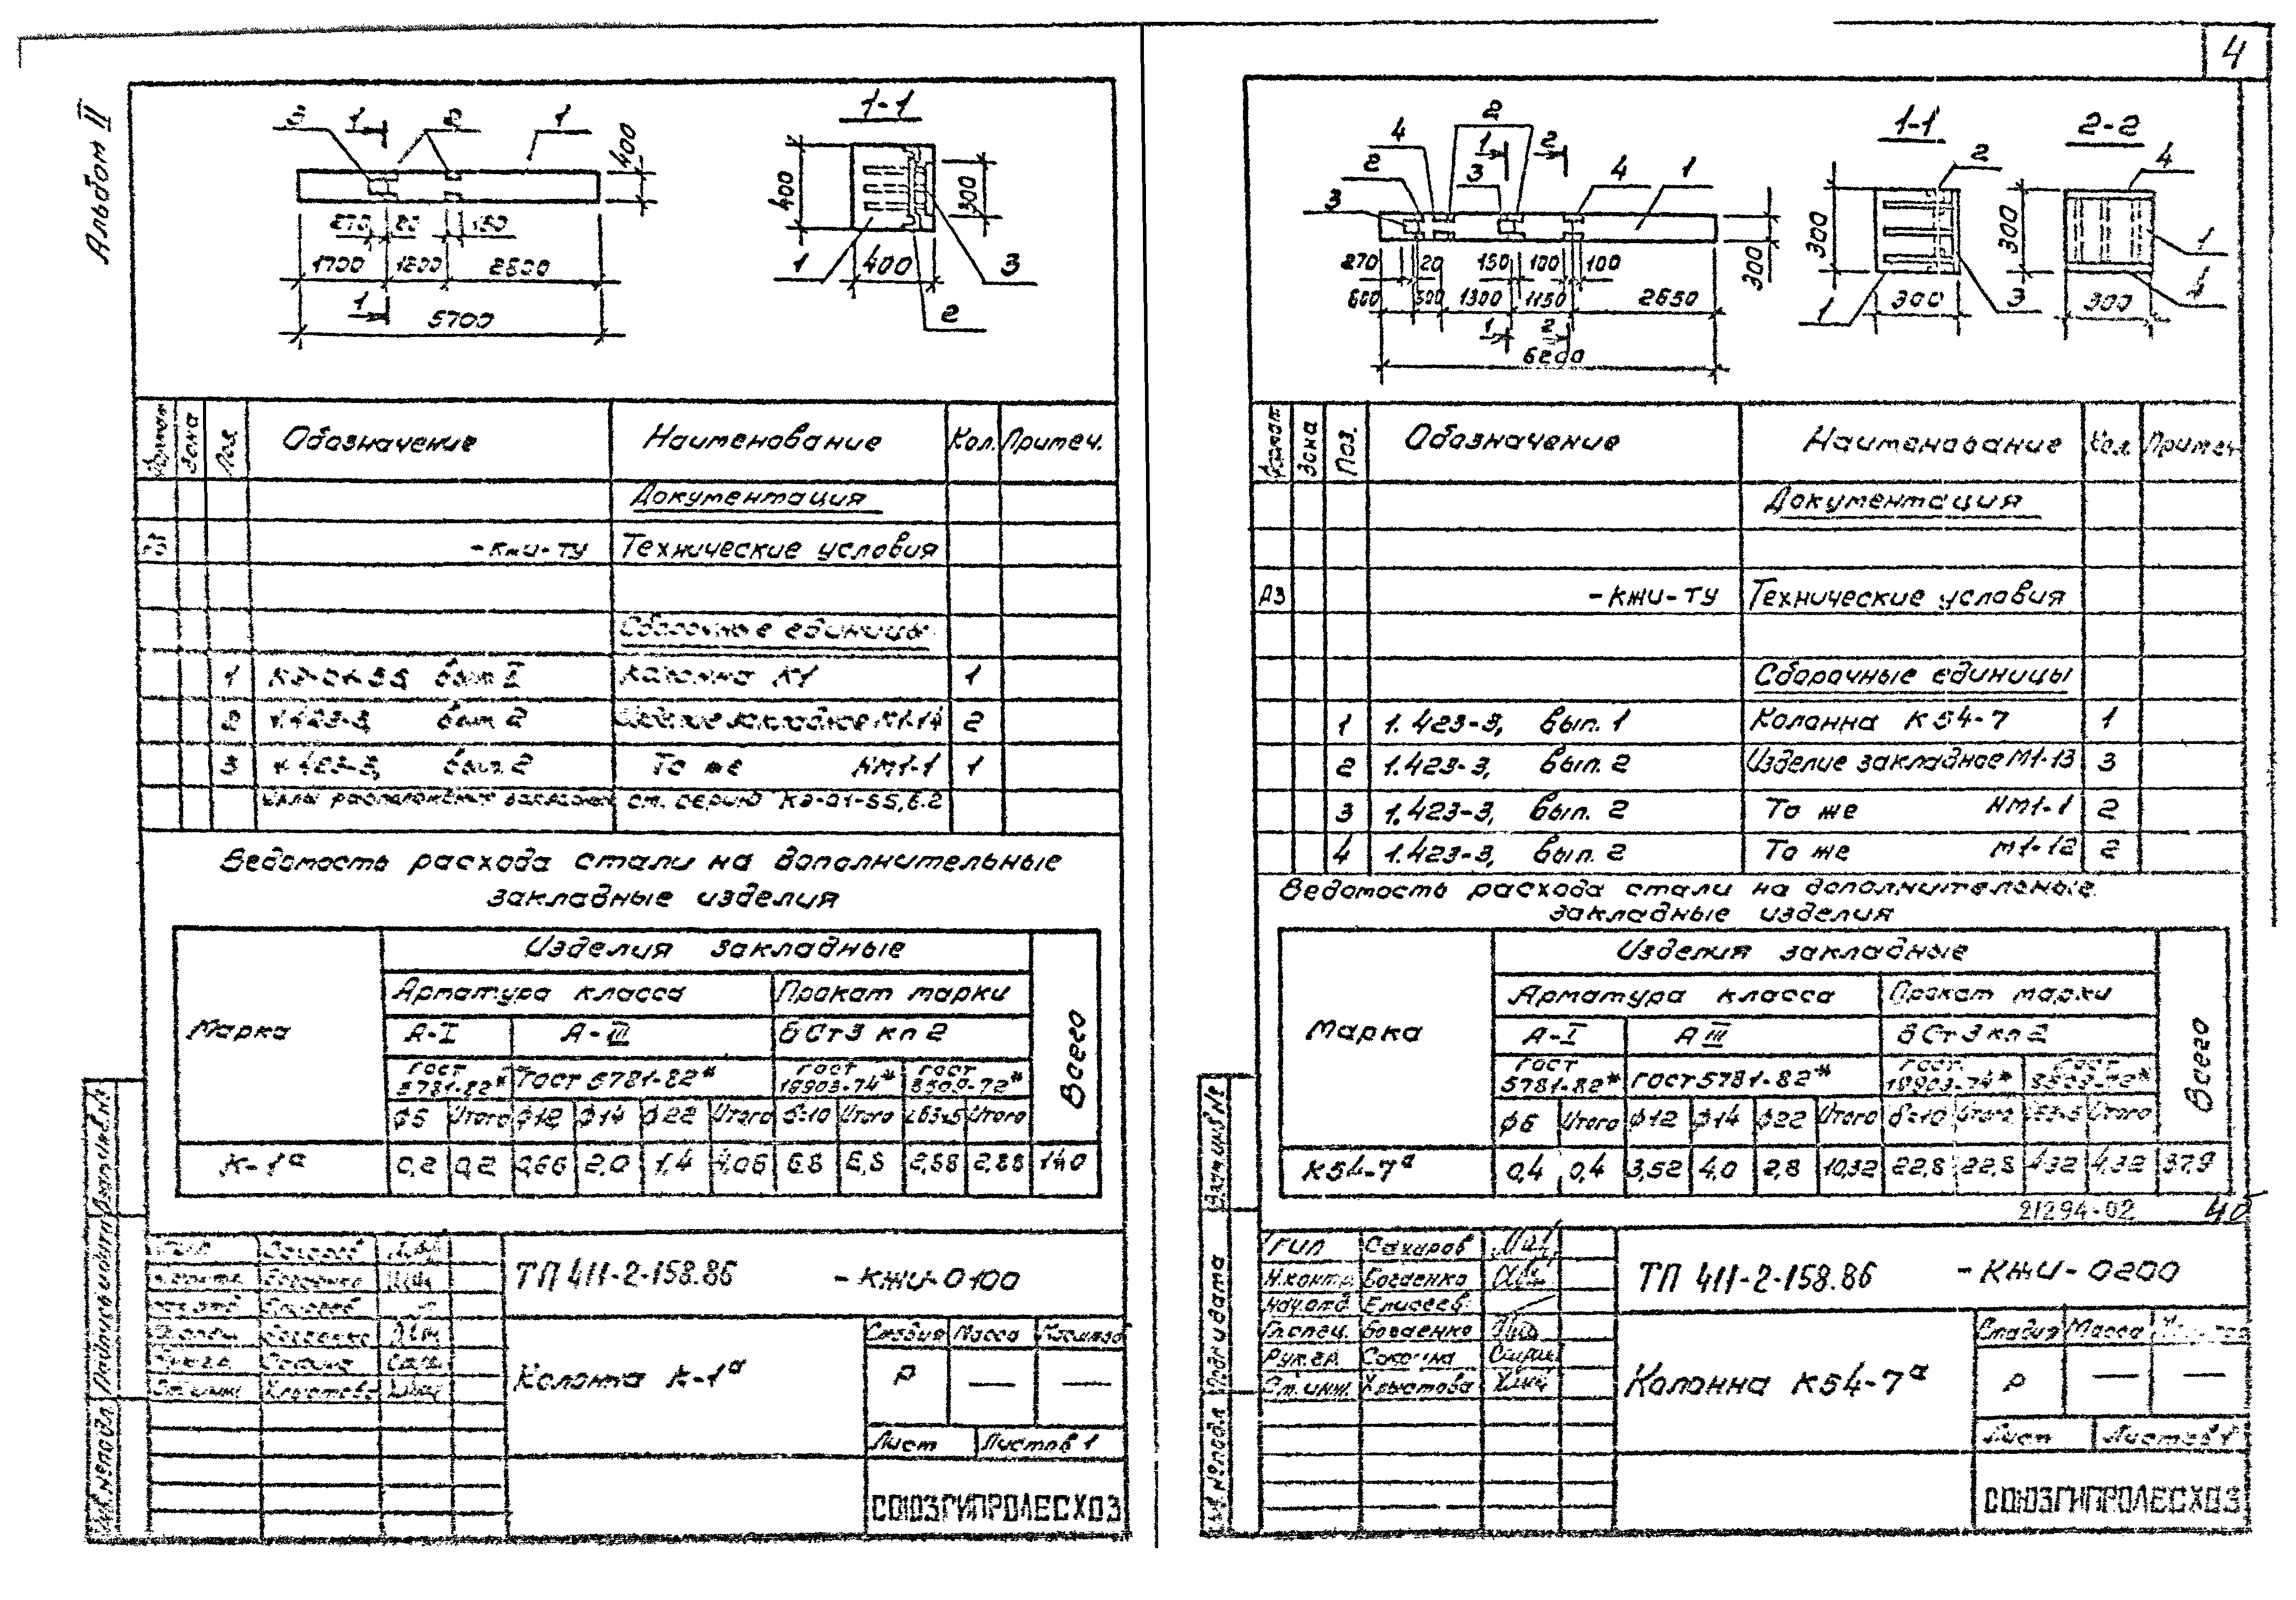 4
Альбом II
3 1 2 1
400
270 20 150
1700 1200 2800
1
5700
1-1
400 300
1 400 3
2
Формат Зона Поз. Обозначение Наименование Кол. Примеч.
Документация
-КЖИ-ТУ Технические условия
Сборочные единицы
1 КЭ-01-55, вып II Колонна К1 1
2 1.423-3, вып 2 Изделие закладное М1-14 2
3 1.423-3, вып. 2 То же НМ1-1 1
см. серию КЭ-01-55, в.2
Ведомость расхода стали на дополнительные
закладные изделия
Марка Изделия закладные Всего
Арматура класса Прокат марки
А-I А-III ВСт3 кп 2
ГОСТ 5781-82* ГОСТ 5781-82* ГОСТ 19903-74* ГОСТ 8509-72*
ϕ6 Итого ϕ12 ϕ14 ϕ22 Итого δ=10 Итого L63×5 Итого
К-1ᵃ 0,2 0,2 0,66 2,0 1,4 4,06 6,8 6,8 2,88 2,88 14,0
ТП 411-2-158.86 -КЖИ-0100
Колонна К-1ᵃ
Стадия Масса Масштаб
Р — —
Лист Листов 1
СОЮЗГИПРОЛЕСХОЗ
2
4 1 2
2 3 4 1
3
300
270 20 150 100 100
600 500 1300 1150 2650
1 2
6200
1-1
2
300
1 300 3
2-2
4
300
1
300 4
Формат Зона Поз. Обозначение Наименование Кол. Примеч
Документация
А3 -КЖИ-ТУ Технические условия
Сборочные единицы
1 1.423-3, вып. 1 Колонна К54-7 1
2 1.423-3, вып. 2 Изделие закладное М1-13 3
3 1.423-3, вып. 2 То же НМ1-1 2
4 1.423-3, вып. 2 То же М1-12 2
Ведомость расхода стали на дополнительные
закладные изделия
Марка Изделия закладные Всего
Арматура класса Прокат марки
А-I А III ВСт3 кп 2
ГОСТ 5781-82* ГОСТ 5781-82* ГОСТ 19903-74* ГОСТ 8509-72*
ϕ6 Итого ϕ12 ϕ14 ϕ22 Итого δ=10 Итого L63×5 Итого
К54-7ᵃ 0,4 0,4 3,52 4,0 2,8 10,32 22,8 22,8 4,32 4,32 37,9
21294-02 40
ГИП Сахаров
Н.контр. Богаенко
Нач.отд Елисеев
Гл.спец. Богаенко
Рук.гр.
Ст.инж. Хлыстова
ТП 411-2-158.86 -КЖИ-0200
Колонна К54-7ᵃ
Стадия Масса
Р — —
Лист Листов 1
СОЮЗГИПРОЛЕСХОЗ